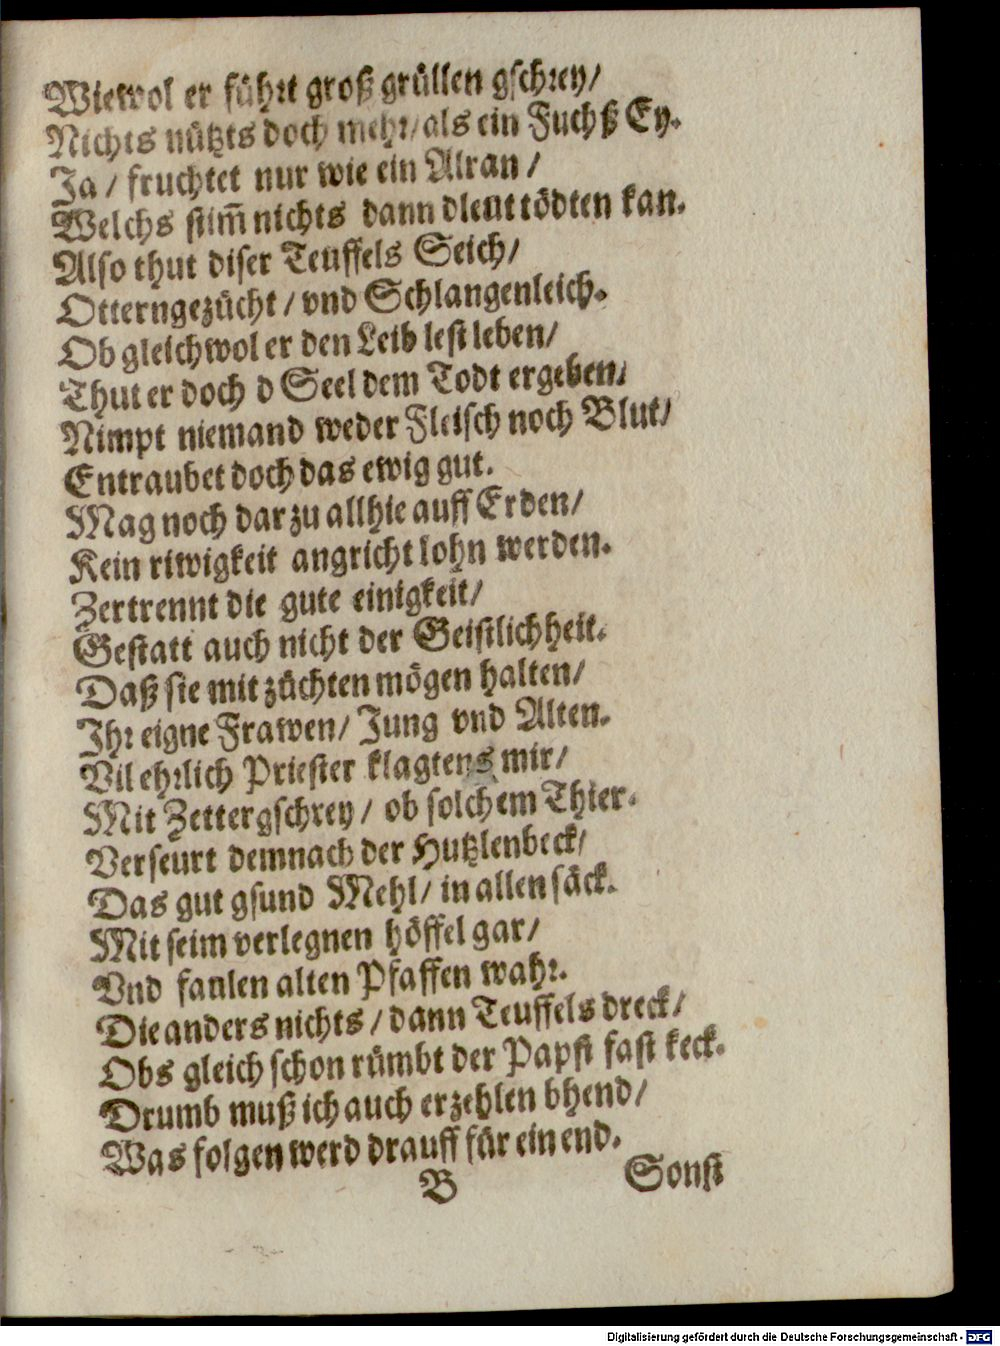 Wiewol er führt groß grüllen gschrey/
Nichts nützts doch mehr/als ein Fuchß Ey.
Ja / fruchtet nur wie ein Alran /
Welchs stim̃ nichts dann dleut tödten kan.
Also thut diser Teuffels Seich/
Otterngezücht / vnd Schlangenleich.
Ob gleichwol er den Leib lest leben/
Thut er doch d Seel dem Todt ergeben/
Nimpt niemand weder Fleisch noch Blut/
Entraubet doch das ewig gut.
Mag noch darzu allhie auff Erden/
Kein riwigkeit angricht lohn werden.
Zertrennt die gute einigkeit/
Gestatt auch nicht der Geistlichheit.
Daß sie mit züchten mögen halten/
Ihr eigne Frawen/ Jung vnd Alten.
Vil ehrlich Priester klagtens mir/
Mit Zettergschrey/ ob solchem Thier.
Verseurt demnach der Hutzlenbeck/
Das gut gsund Mehl/ in allen säck.
Mit seim verlegnen höffel gar/
Vnd faulen alten Pfaffen wahr.
Die anders nichts / dann Teuffels dreck/
Obs gleich schon rümbt der Papst fast keck.
Drumb muß ich auch erzehlen bhend/
Was folgen werd drauff für ein end.
B Sonst
Digitalisierung gefördert durch die Deutsche Forschungsgemeinschaft - DFG